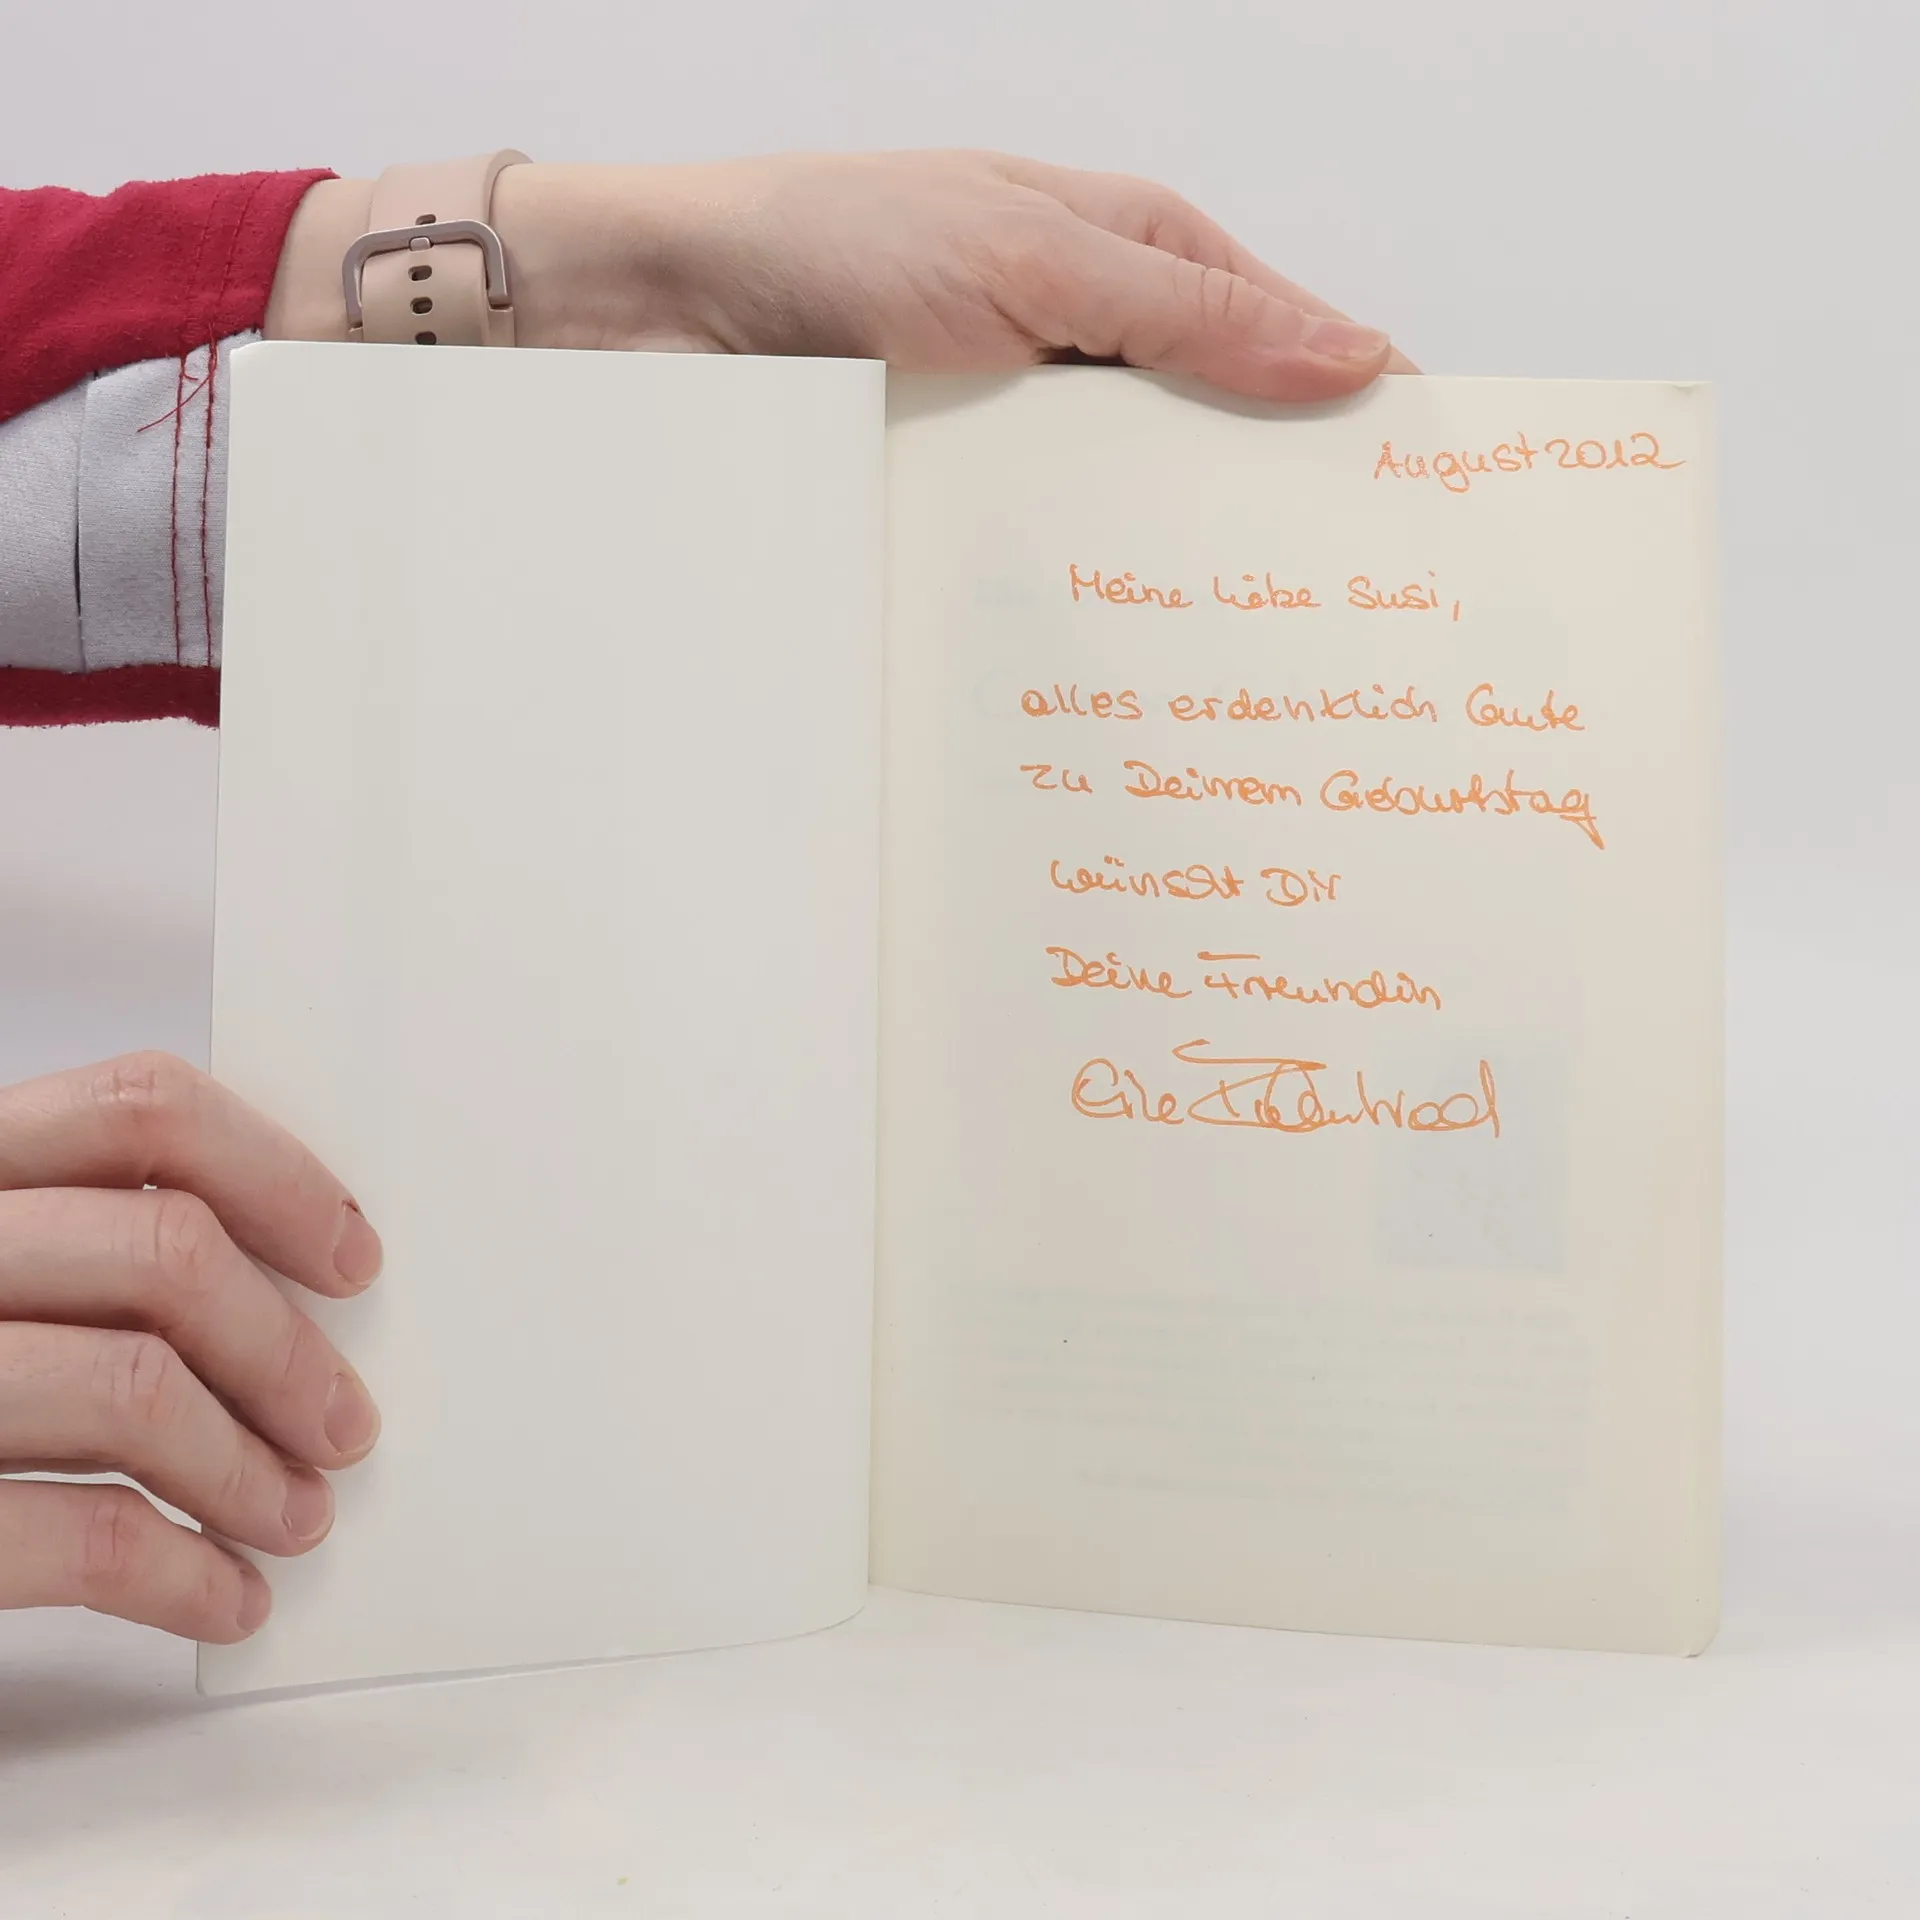 August 2012
Meine liebe Susi,
alles erdenklich Gute
zu Deinem Geburtstag
wünscht Dir
Deine Freundin